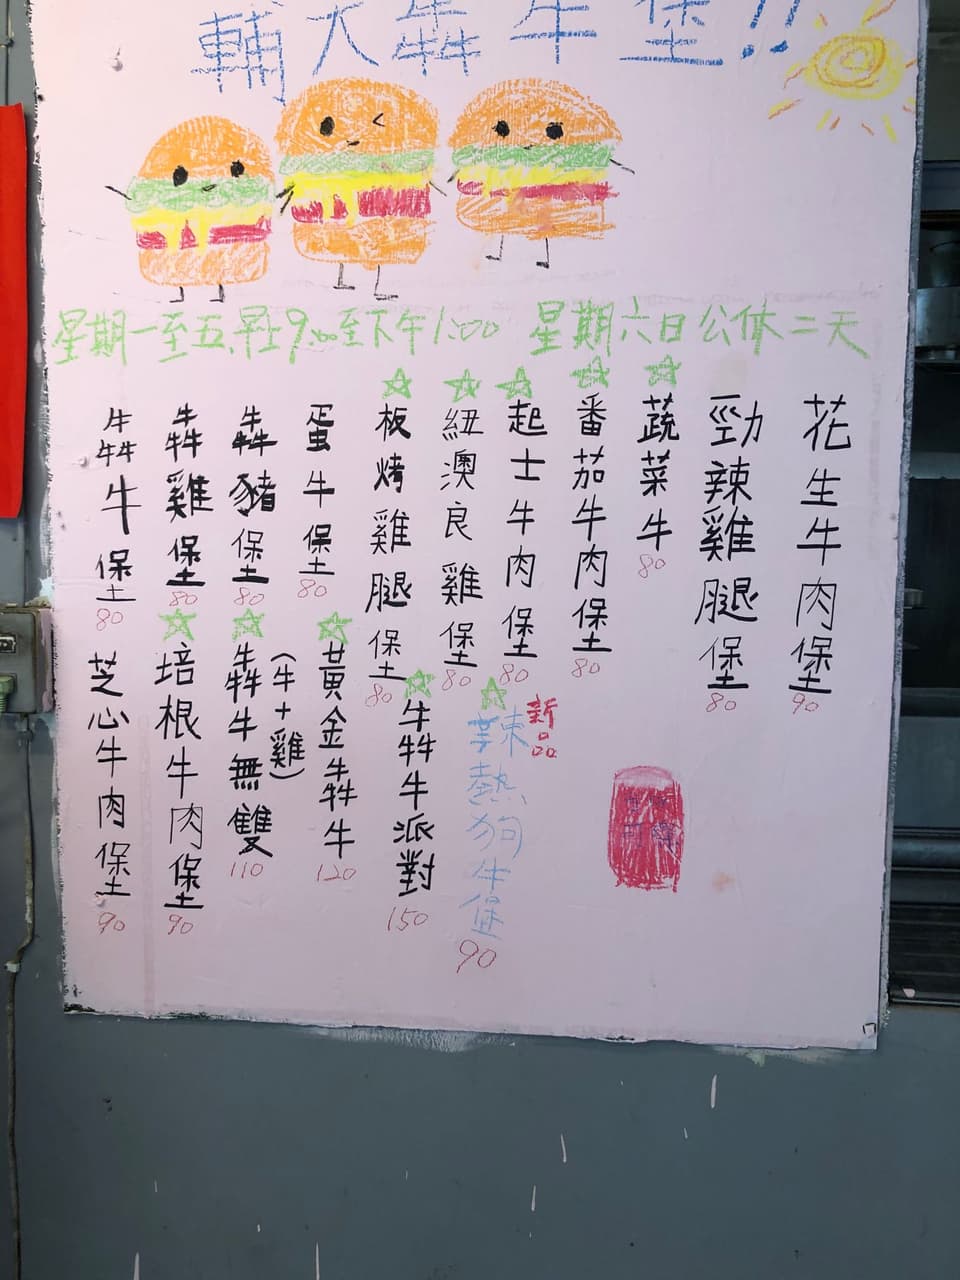 輔大犇牛堡!!
星期一至五,早上9:00至下午1:00 星期六日公休二天
花生牛肉堡 90
勁辣雞腿堡 80
蔬菜牛 80
番茄牛肉堡 80
起士牛肉堡 80
紐澳良雞堡 80
板烤雞腿堡 80
蛋牛堡 80
犇豬堡 80
犇雞堡 80
犇牛堡 80
新品
辣熱狗牛堡 90
犇牛派對 150
黃金犇牛 120
犇牛無雙 (牛+雞) 110
培根牛肉堡 90
芝心牛肉堡 90